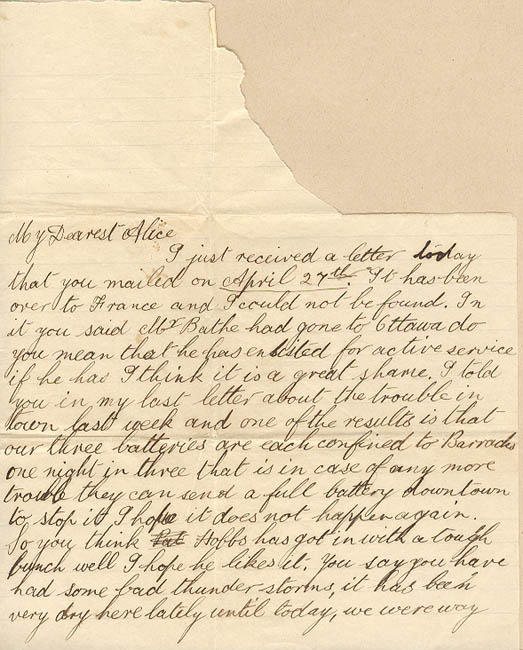 My Dearest Alice
I just received a letter today
that you mailed on April 27th. It has been
over to France and I could not be found. In
it you said Mr Bathe had gone to Ottawa do
you mean that he has enlisted for active service
if he has I think it is a great shame. I told
you in my last letter about the trouble in
town last week and one of the results is that
our three batteries are each confined to Barracks
one night in three that is in case of any more
trouble they can send a full battery downtown
to stop it I hope it does not happen again.
So you think Hobbs has got in with a tough
bunch well I hope he likes it. You say you have
had some bad thunder storms, it has been
very dry here lately until today, we were way